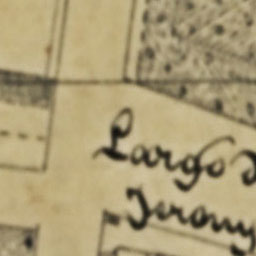 Largo d
Jerony